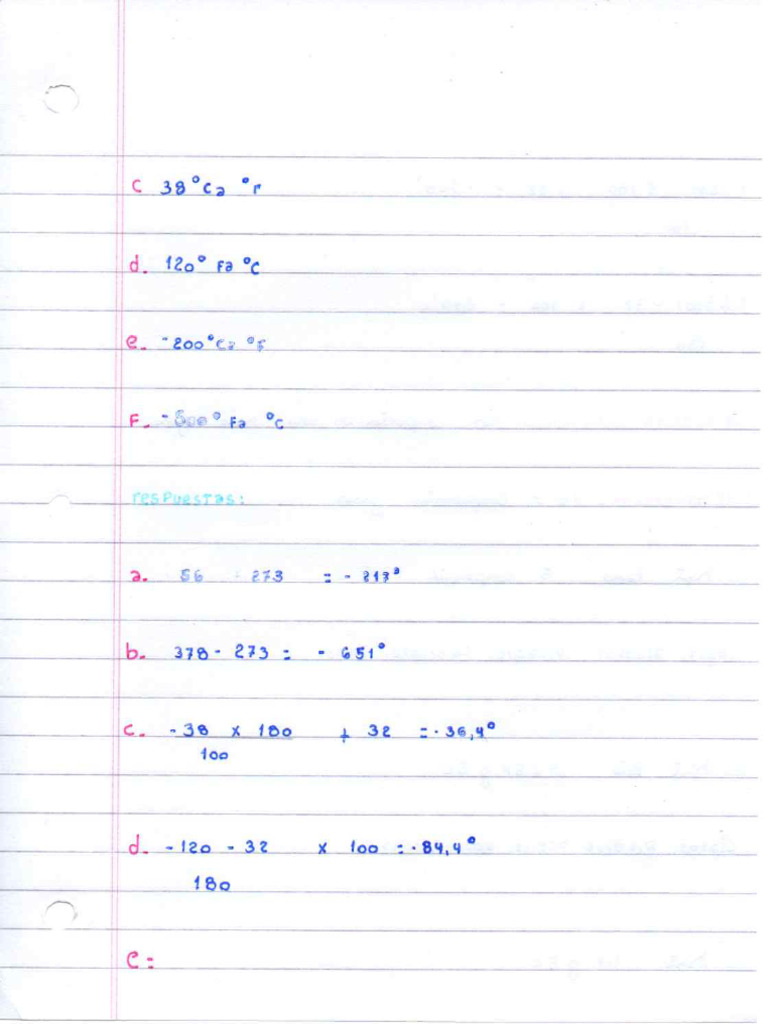 c 38°Ca °F
d. 120° Fa °C
e. -200°Ca °F
F. -500° Fa °C
resPuestas:
a. 56 - 273 = - 217°
b. 378 - 273 = - 651°
c. - 38 x 180 + 32 = - 36,4°
100
d. - 120 - 32 x 100 = - 84,4°
180
e =